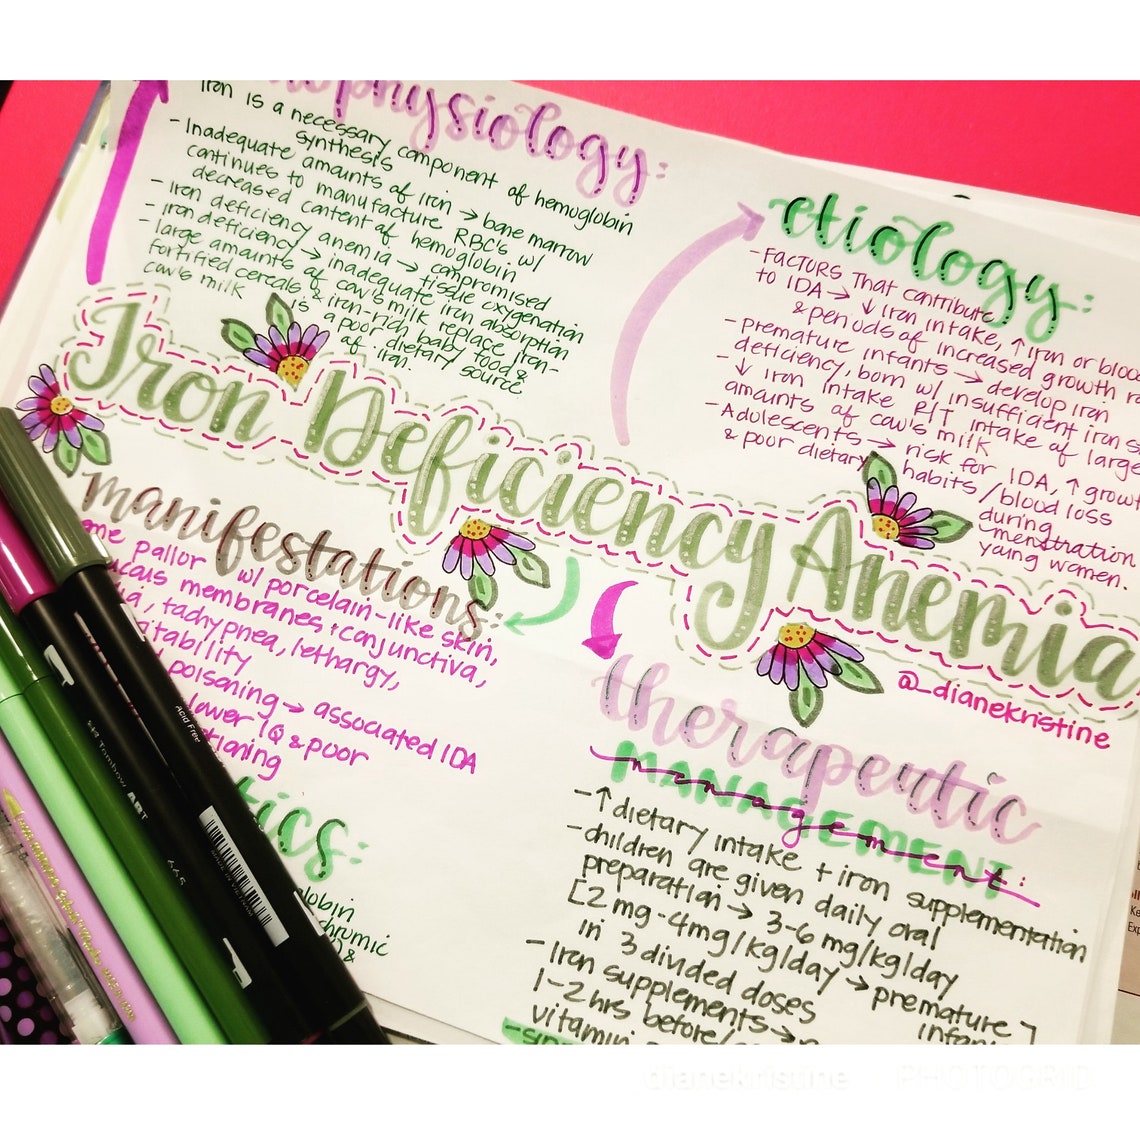 physiology:
Iron is a necessary component of hemoglobin
synthesis
- Inadequate amounts of iron → bone marrow
continues to manufacture RBC's w/
decreased content of hemoglobin
- Iron deficiency anemia → compromised
tissue oxygenation
- Iron deficiency → inadequate iron absorption
large amounts of cow's milk replace iron-
fortified cereals & iron-rich baby food &
cow's milk is a poor dietary source
of iron.
etiology:
- FACTORS That contribute
to IDA → ↓ iron intake, ↑ iron or blood
& periods of increased growth
- premature infants → develop iron
deficiency, born w/ insufficient iron
- ↓ iron intake R/T intake of large
amounts of cow's milk
- Adolescents → risk for IDA, ↑ growth
& poor dietary habits/blood loss
during
menstration
young women.
Iron Deficiency Anemia
@_dianekristine
manifestations:
pallor w/ porcelain-like skin,
membranes + conjunctiva,
, tachypnea, lethargy,
poisoning → associated IDA
lower IQ & poor
therapeutic
MANAGEMENT:
management
- ↑ dietary intake + iron supplementation
- children are given daily oral
preparation → 3-6 mg/kg/day
[2 mg - 4mg/kg/day → premature
in 3 divided doses
- Iron supplements →
1-2 hrs before/
vitamin
Acid Free
Tombow ABT
MADE IN VIETNAM
dianekristine
PHOTOGRID